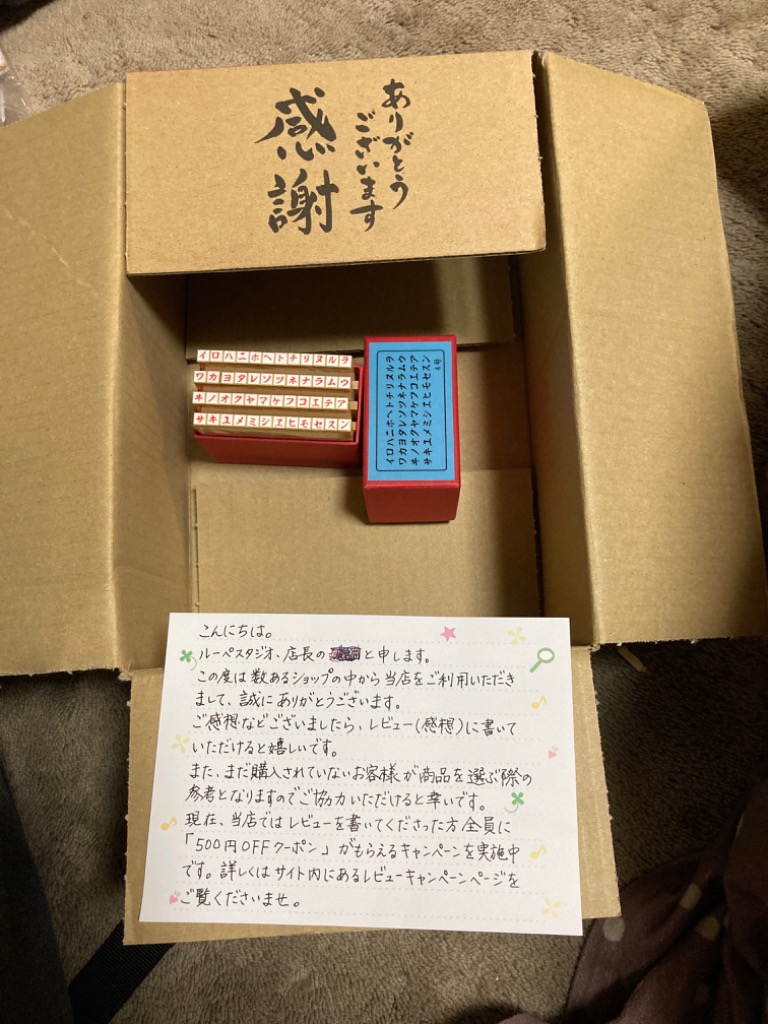 ありがとう
ございます
感謝
イロハニホヘトチリヌルヲ
ワカヨタレソツネナラムウ
ヰノオクヤマケフコエテア
サキユメミシヱヒモセスン
イロハニホヘトチリヌルヲ
ワカヨタレソツネナラムウ
ヰノオクヤマケフコエテア
サキユメミシヱヒモセスン
4号
こんにちは。
ルーペスタジオ、店長の と申します。
この度は数あるショップの中から当店をご利用いただき
まして、誠にありがとうございます。
ご感想などございましたら、レビュー(感想)に書いて
いただけると嬉しいです。
また、まだ購入されていないお客様が商品を選ぶ際の
参考となりますのでご協力いただけると幸いです。
現在、当店ではレビューを書いてくださった方全員に
「500円OFFクーポン」がもらえるキャンペーンを実施中
です。詳しくはサイト内にあるレビューキャンペーンページを
ご覧くださいませ。